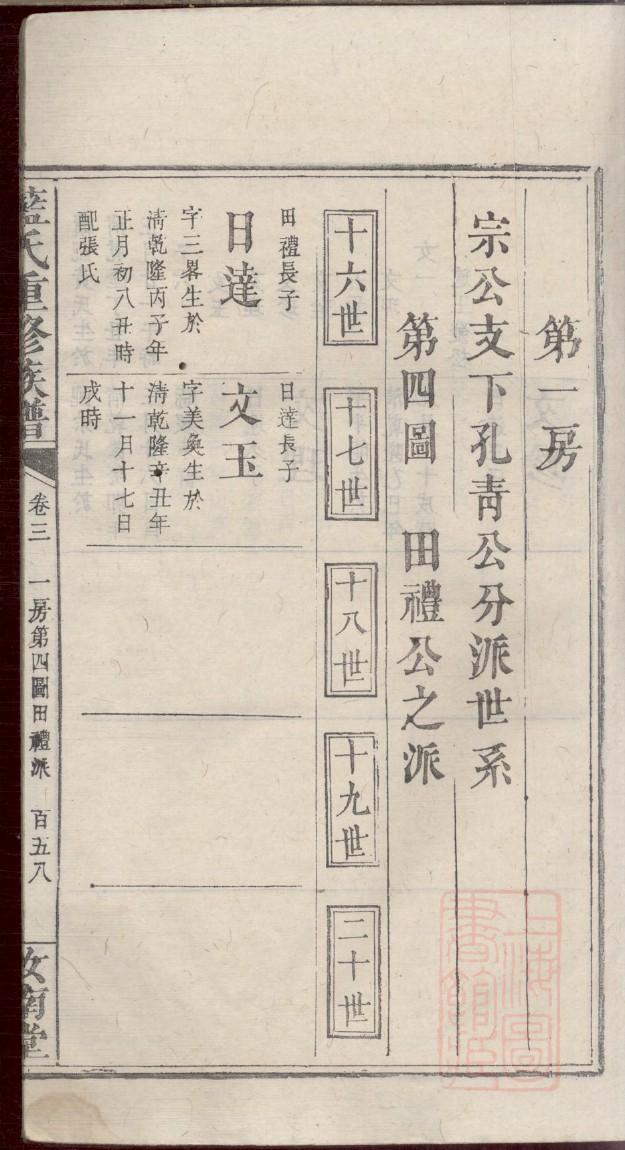 第一房
宗公支下孔青公分派世系
第四圖　田禮公之派
十六世
十七世
十八世
十九世
二十世
田禮長子
日達
字三畧生於
清乾隆丙子年
正月初八丑時
配張氏
日達長子
文玉
字美奐生於
清乾隆辛丑年
十一月十七日
戌時
藍氏重修族譜
卷三
一房第四圖田禮派
百五八
汝南堂
上海圖
書館藏